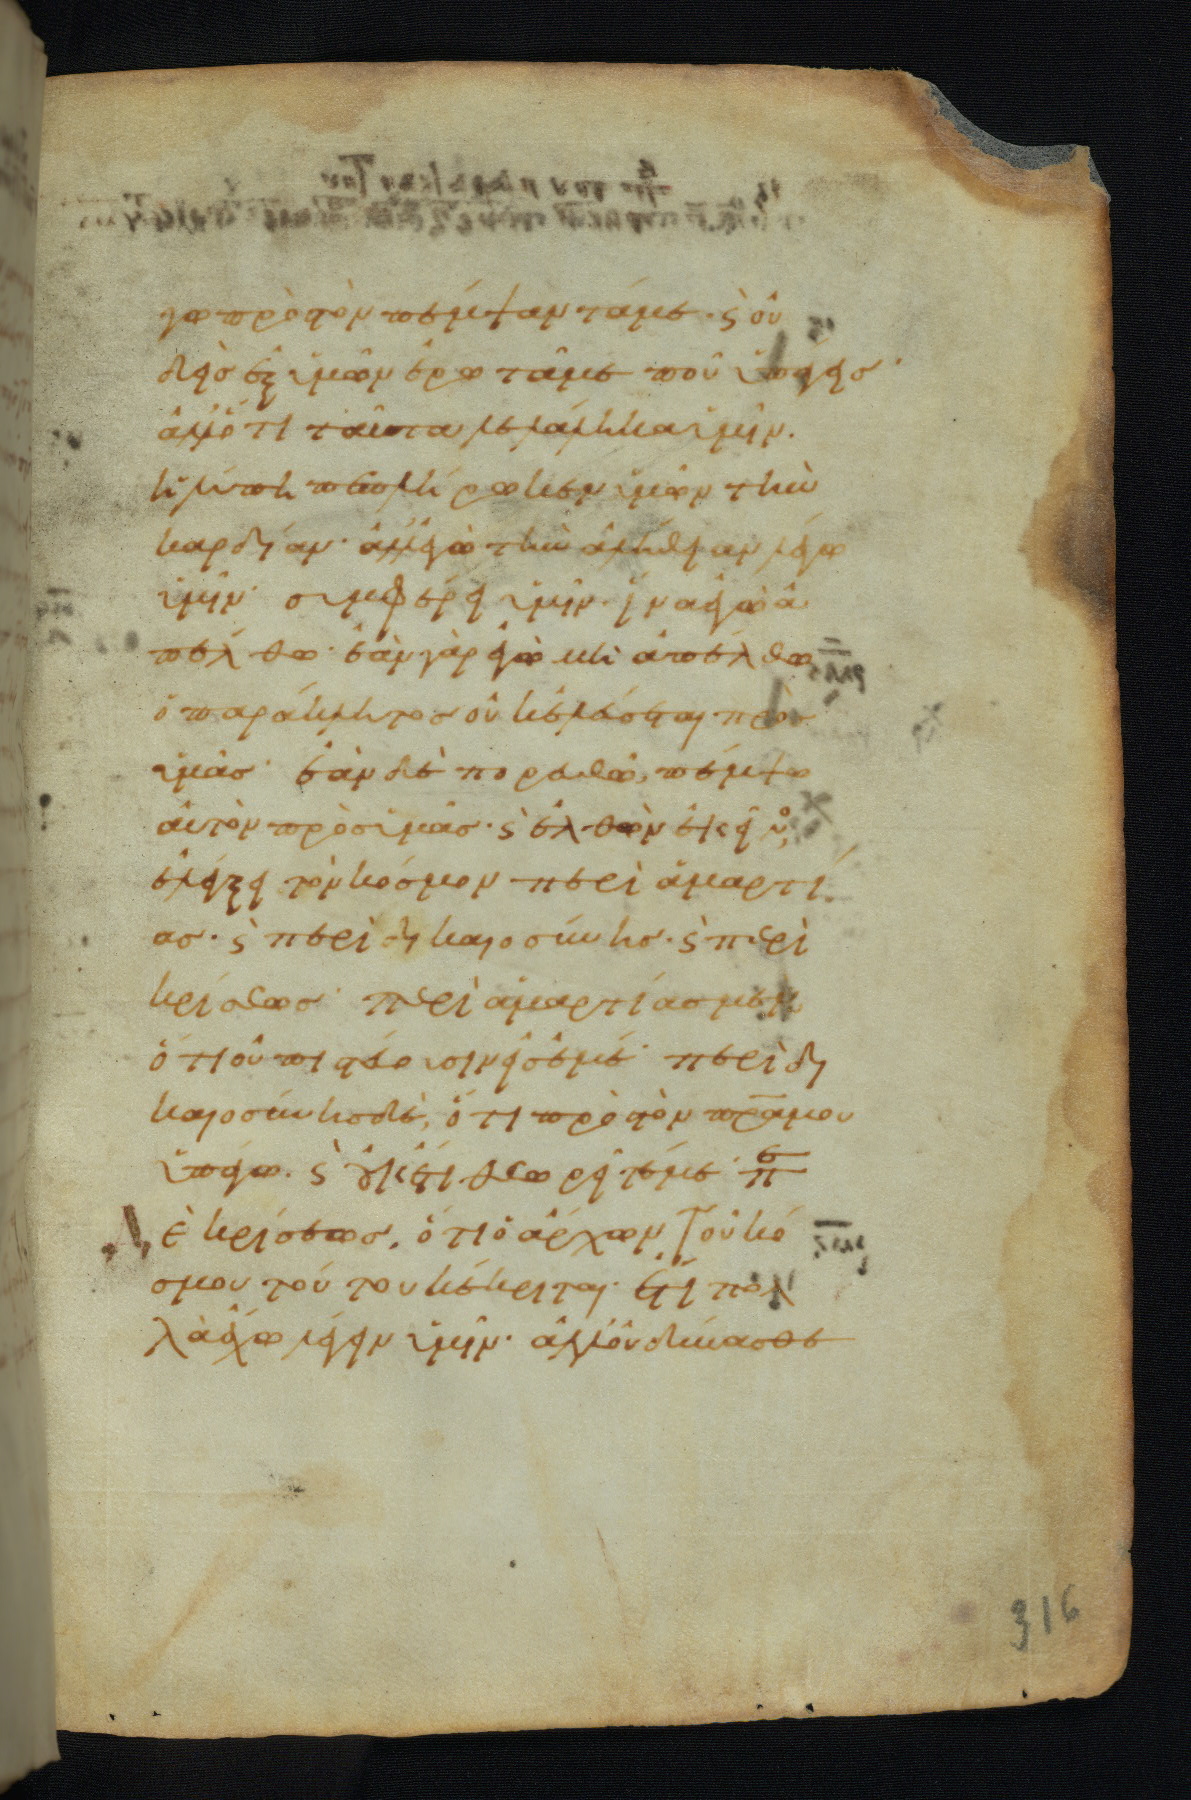 γω πρὸς τὸν πέμψαντά με. ϛ οὐ
δεὶς ἐξ ὑμῶν ἐρωτᾶ με ποῦ ὑπάγεις
ἀλλ' ὅτι ταῦτα λελάληκα ὑμῖν.
ἡ λύπη πεπλήρωκεν ὑμῶν τὴν
καρδίαν. ἀλλ' ἐγὼ τὴν ἀλήθειαν λέγω
ὑμῖν. συμφέρει ὑμῖν. ἵνα ἐγὼ ἀ
πέλθω. ἐὰν γὰρ ἐγὼ μὴ ἀπέλθω
ὁ παράκλητος οὐκ ἐλεύσεται πρὸς
ὑμᾶς. ἐὰν δὲ πορευθῶ, πέμψω
αὐτὸν πρὸς ὑμᾶς. ϛ ἐλθὼν ἐκεῖνος,
ἐλέγξει τὸν κόσμον περὶ ἁμαρτί
ας. ϛ περὶ δικαιοσύνης. ϛ περὶ
κρίσεως. περὶ ἁμαρτίας μεν
ὅτι οὐ πιστεύουσιν εἰς ἐμέ. περὶ δι
καιοσύνης δὲ, ὅτι πρὸς τὸν πρ̅α μου
ὑπάγω. ϛ οὐκέτι θεωρεῖτέ με. πε
ρὶ δὲ κρίσεως, ὅτι ὁ ἄρχων τοῦ κό
σμου τούτου κέκριται. ἔτι πολ
λὰ ἔχω λέγειν ὑμῖν. ἀλλ' οὐ δύνασθε
316